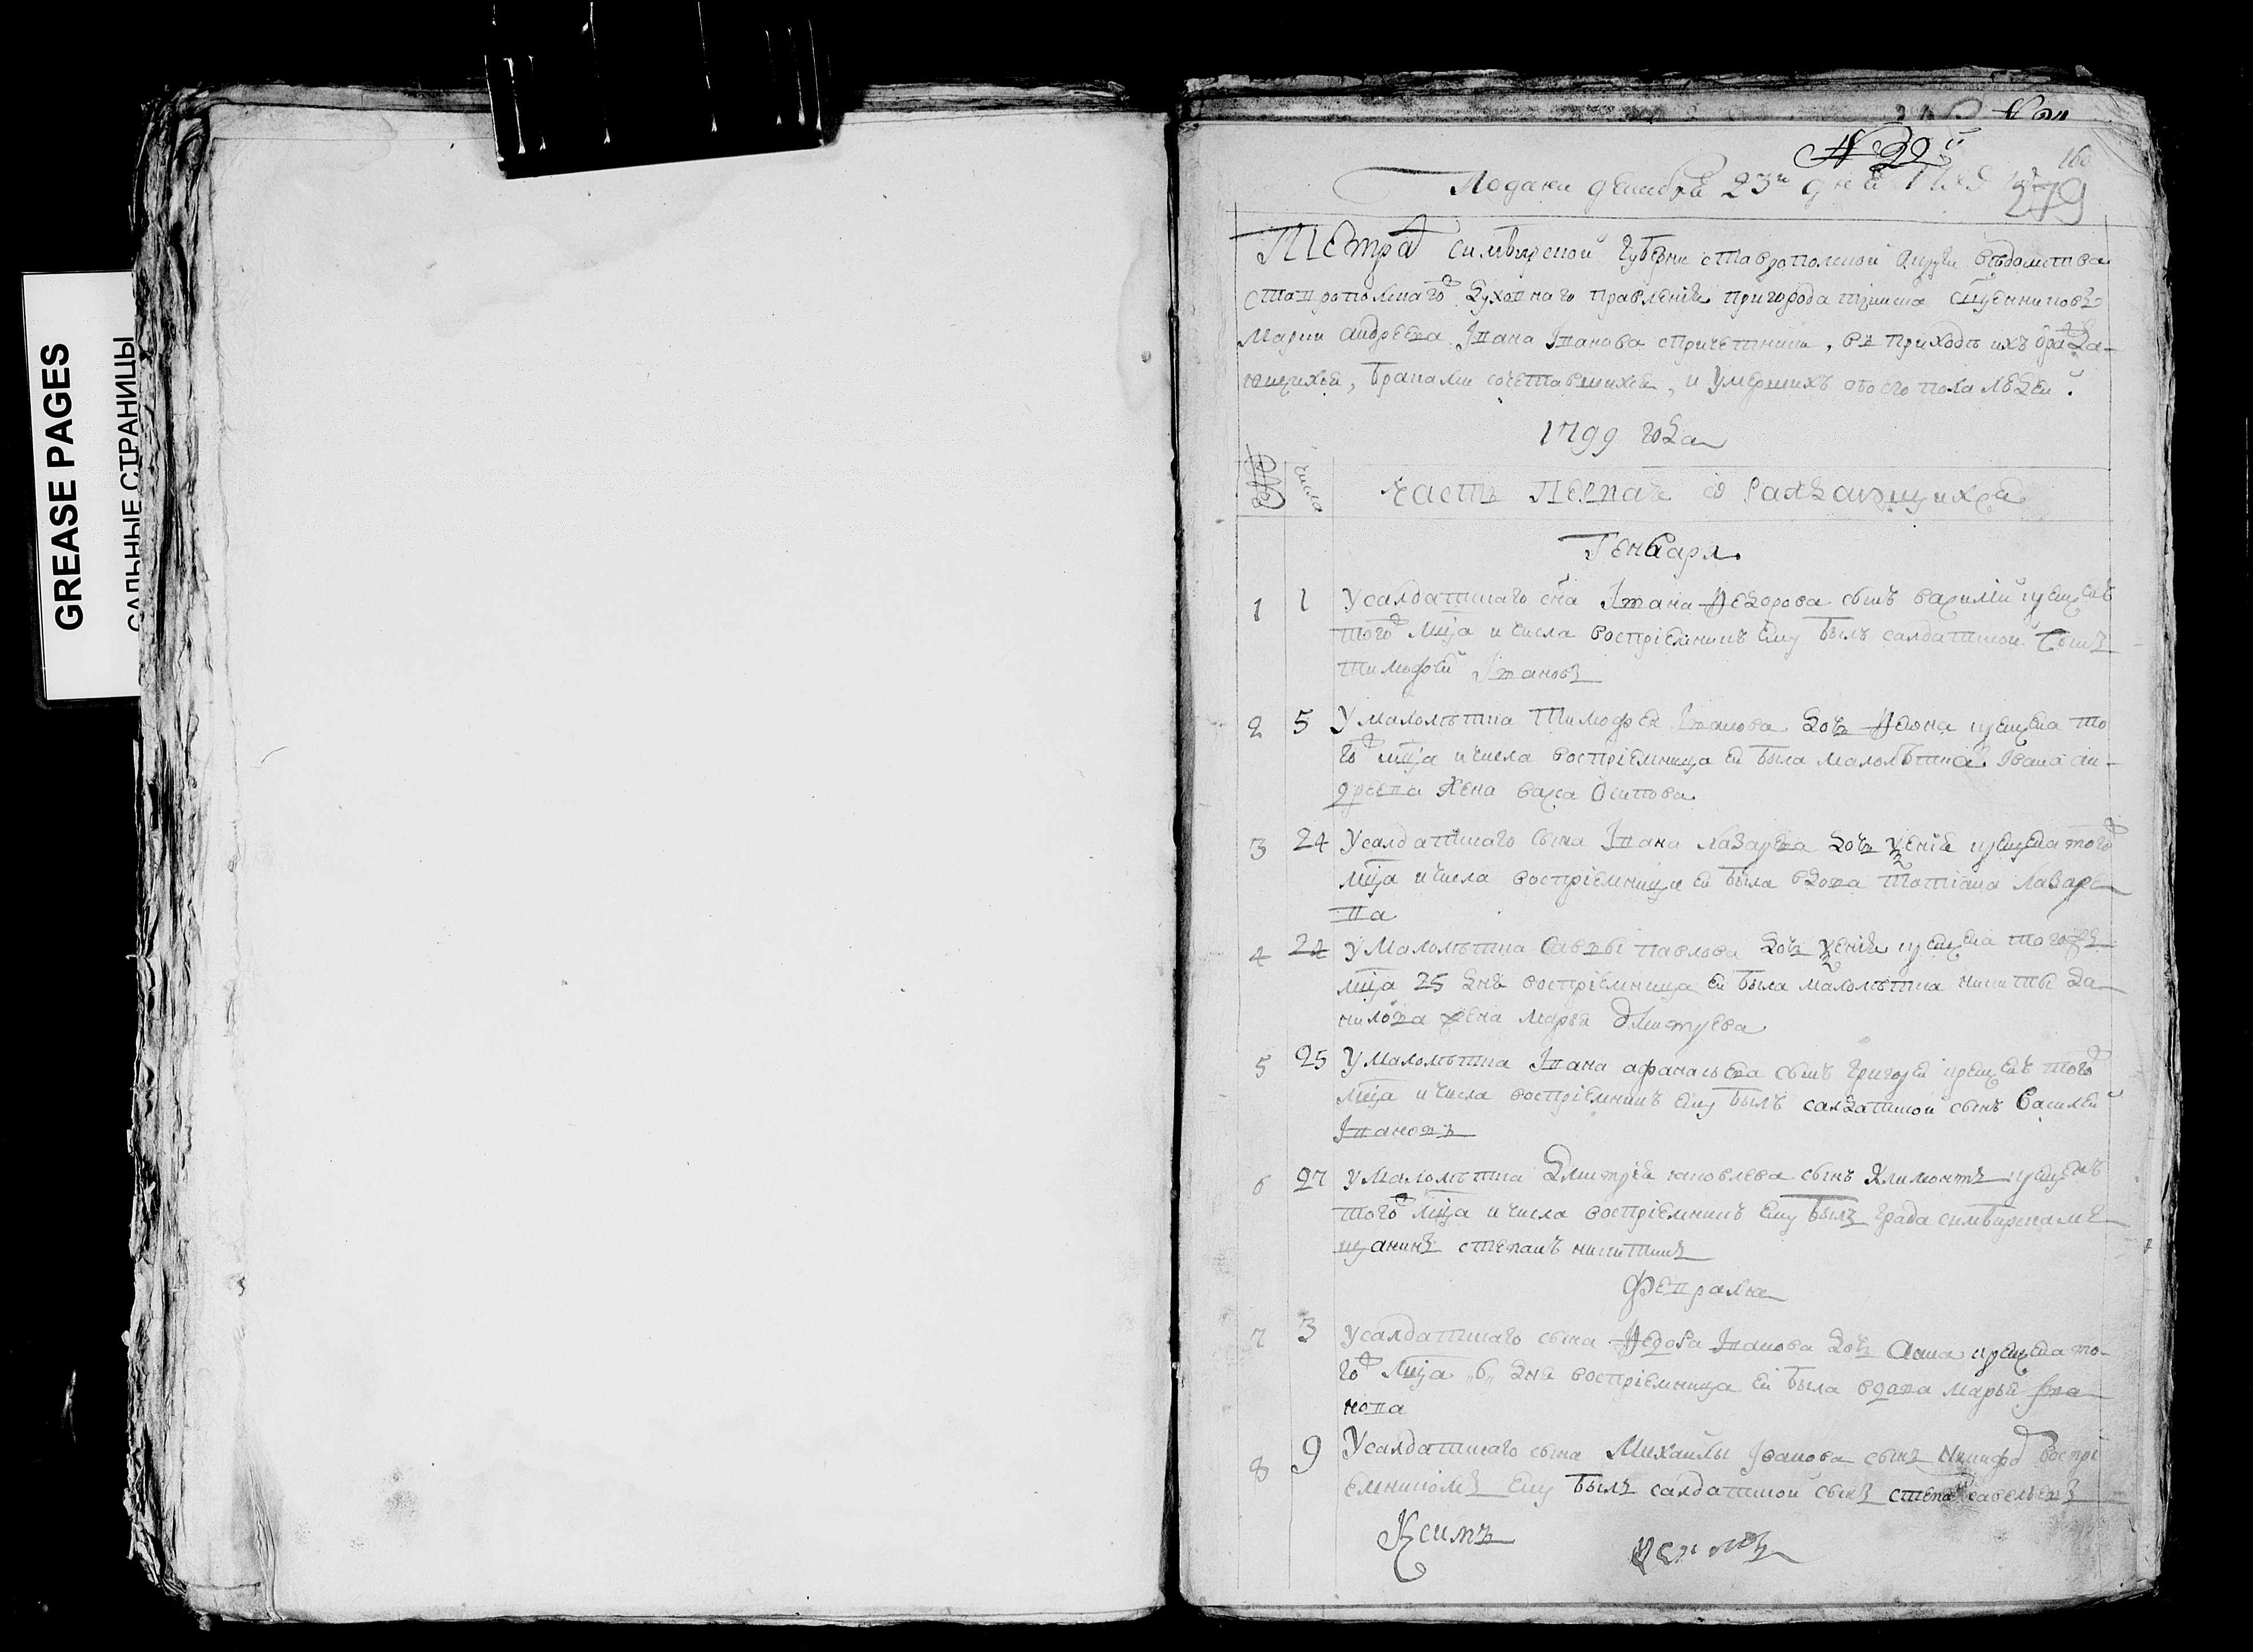 GREASE PAGES
САЛЬНЫЕ СТРАНИЦЫ
№ 20й
160
Подани декабря 23го дня 1799
279
Тетрадь симбирской губерни ставропольской округи ведомства
ставропольскаго духовнаго правления пригорода тиинска сщенниковъ
Марки андреева Ивана Иванова спричетники, въ приходѣ ихъ ражда-
ющихся, браками сочетавшихся, и умершихъ обоего пола людей.
1799 года
№ числа
часть первая о раждающихся
Генваря
1 1 У салдатскаго сна Ивана Федорова сынъ василий крещенъ
того мца и числа восприемникъ ему былъ салдатской сынъ
тимофей Ивановъ
2 5 У малолѣтка Тимофея Иванова дочь крещена то
го мца и числа восприемница ей была малолѣтка Ивана ан-
дреева жена васа Осипова
3 24 У салдатскаго сына Ивана Лазарева дочь ксения крещена того
мца и числа восприемница ей была вдова татиана лазаре
ва
4 24 У малолѣтка Саввы павлова дочь ксения крещена того
мца 25 дня восприемница ей была малолѣтка никиты да-
нилова жена марья дмитрева
5 25 У малолѣтка Ивана афанасьева сынъ григорей крещенъ того
мца и числа восприемникъ ему былъ салдатской сынъ василей
Ивановъ
6 27 У малолѣтка Дмитрия яковлева сынъ Климонтъ крещенъ
того мца и числа восприемникъ ему былъ града симбирска ме
щанинъ степанъ никитинъ
февраля
7 3 У салдатскаго сына Федора Иванова дочь Анна крещена то-
го мца 6 дня восприемница ей была вдова марья Ива
нова
8 9 У салдатскаго сына Михаилы Иванова сынъ воспри
емникомъ ему былъ салдатской сынъ степа савельевъ